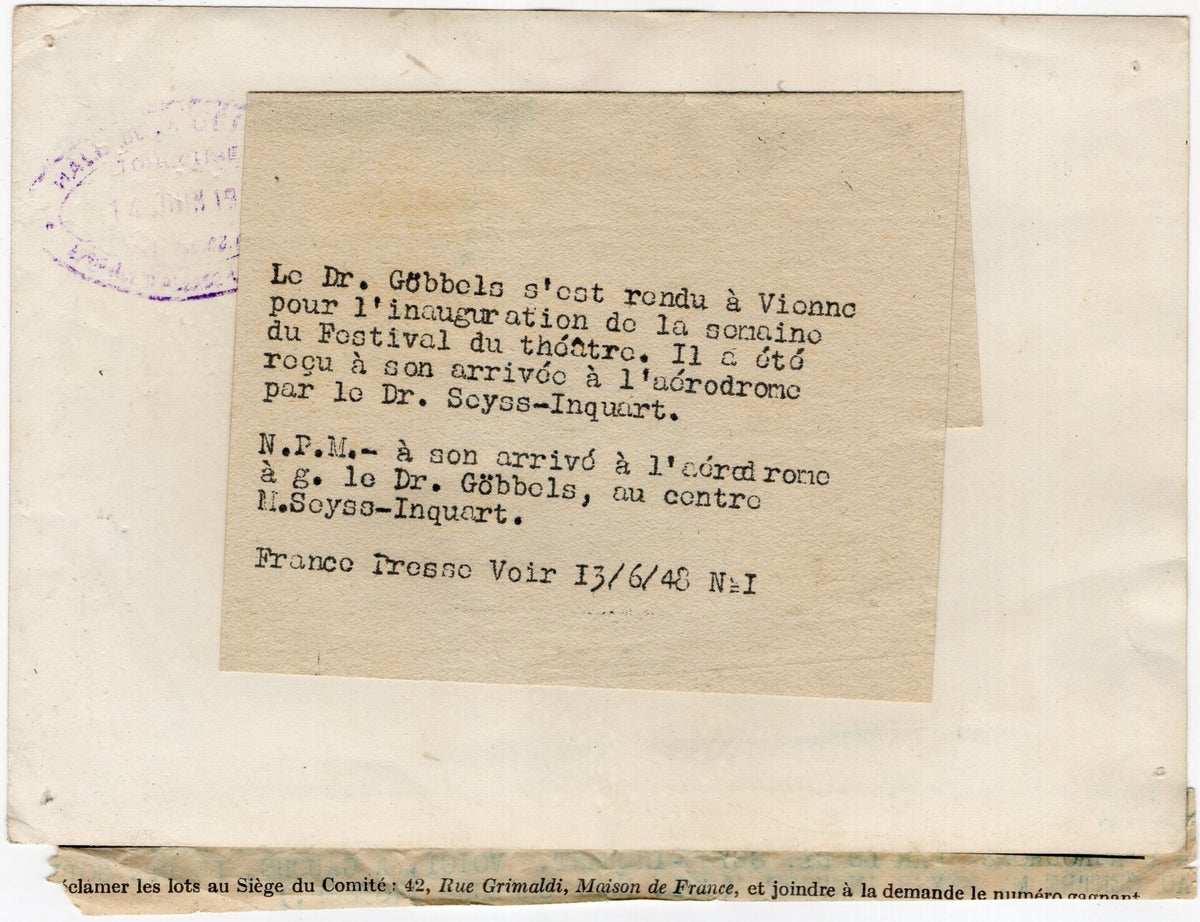 14 JUIN 19
Le Dr. Göbbels s'est rendu à Vienne
pour l'inauguration de la semaine
du Festival du théâtre. Il a été
reçu à son arrivée à l'aérodrome
par le Dr. Seyss-Inquart.
N.P.M.- à son arrivé à l'aérodrome
à g. le Dr. Göbbels, au centre
M.Seyss-Inquart.
France Presse Voir I3/6/48 N=I
éclamer les lots au Siège du Comité : 42, Rue Grimaldi, Maison de France, et joindre à la demande le numéro gagnant